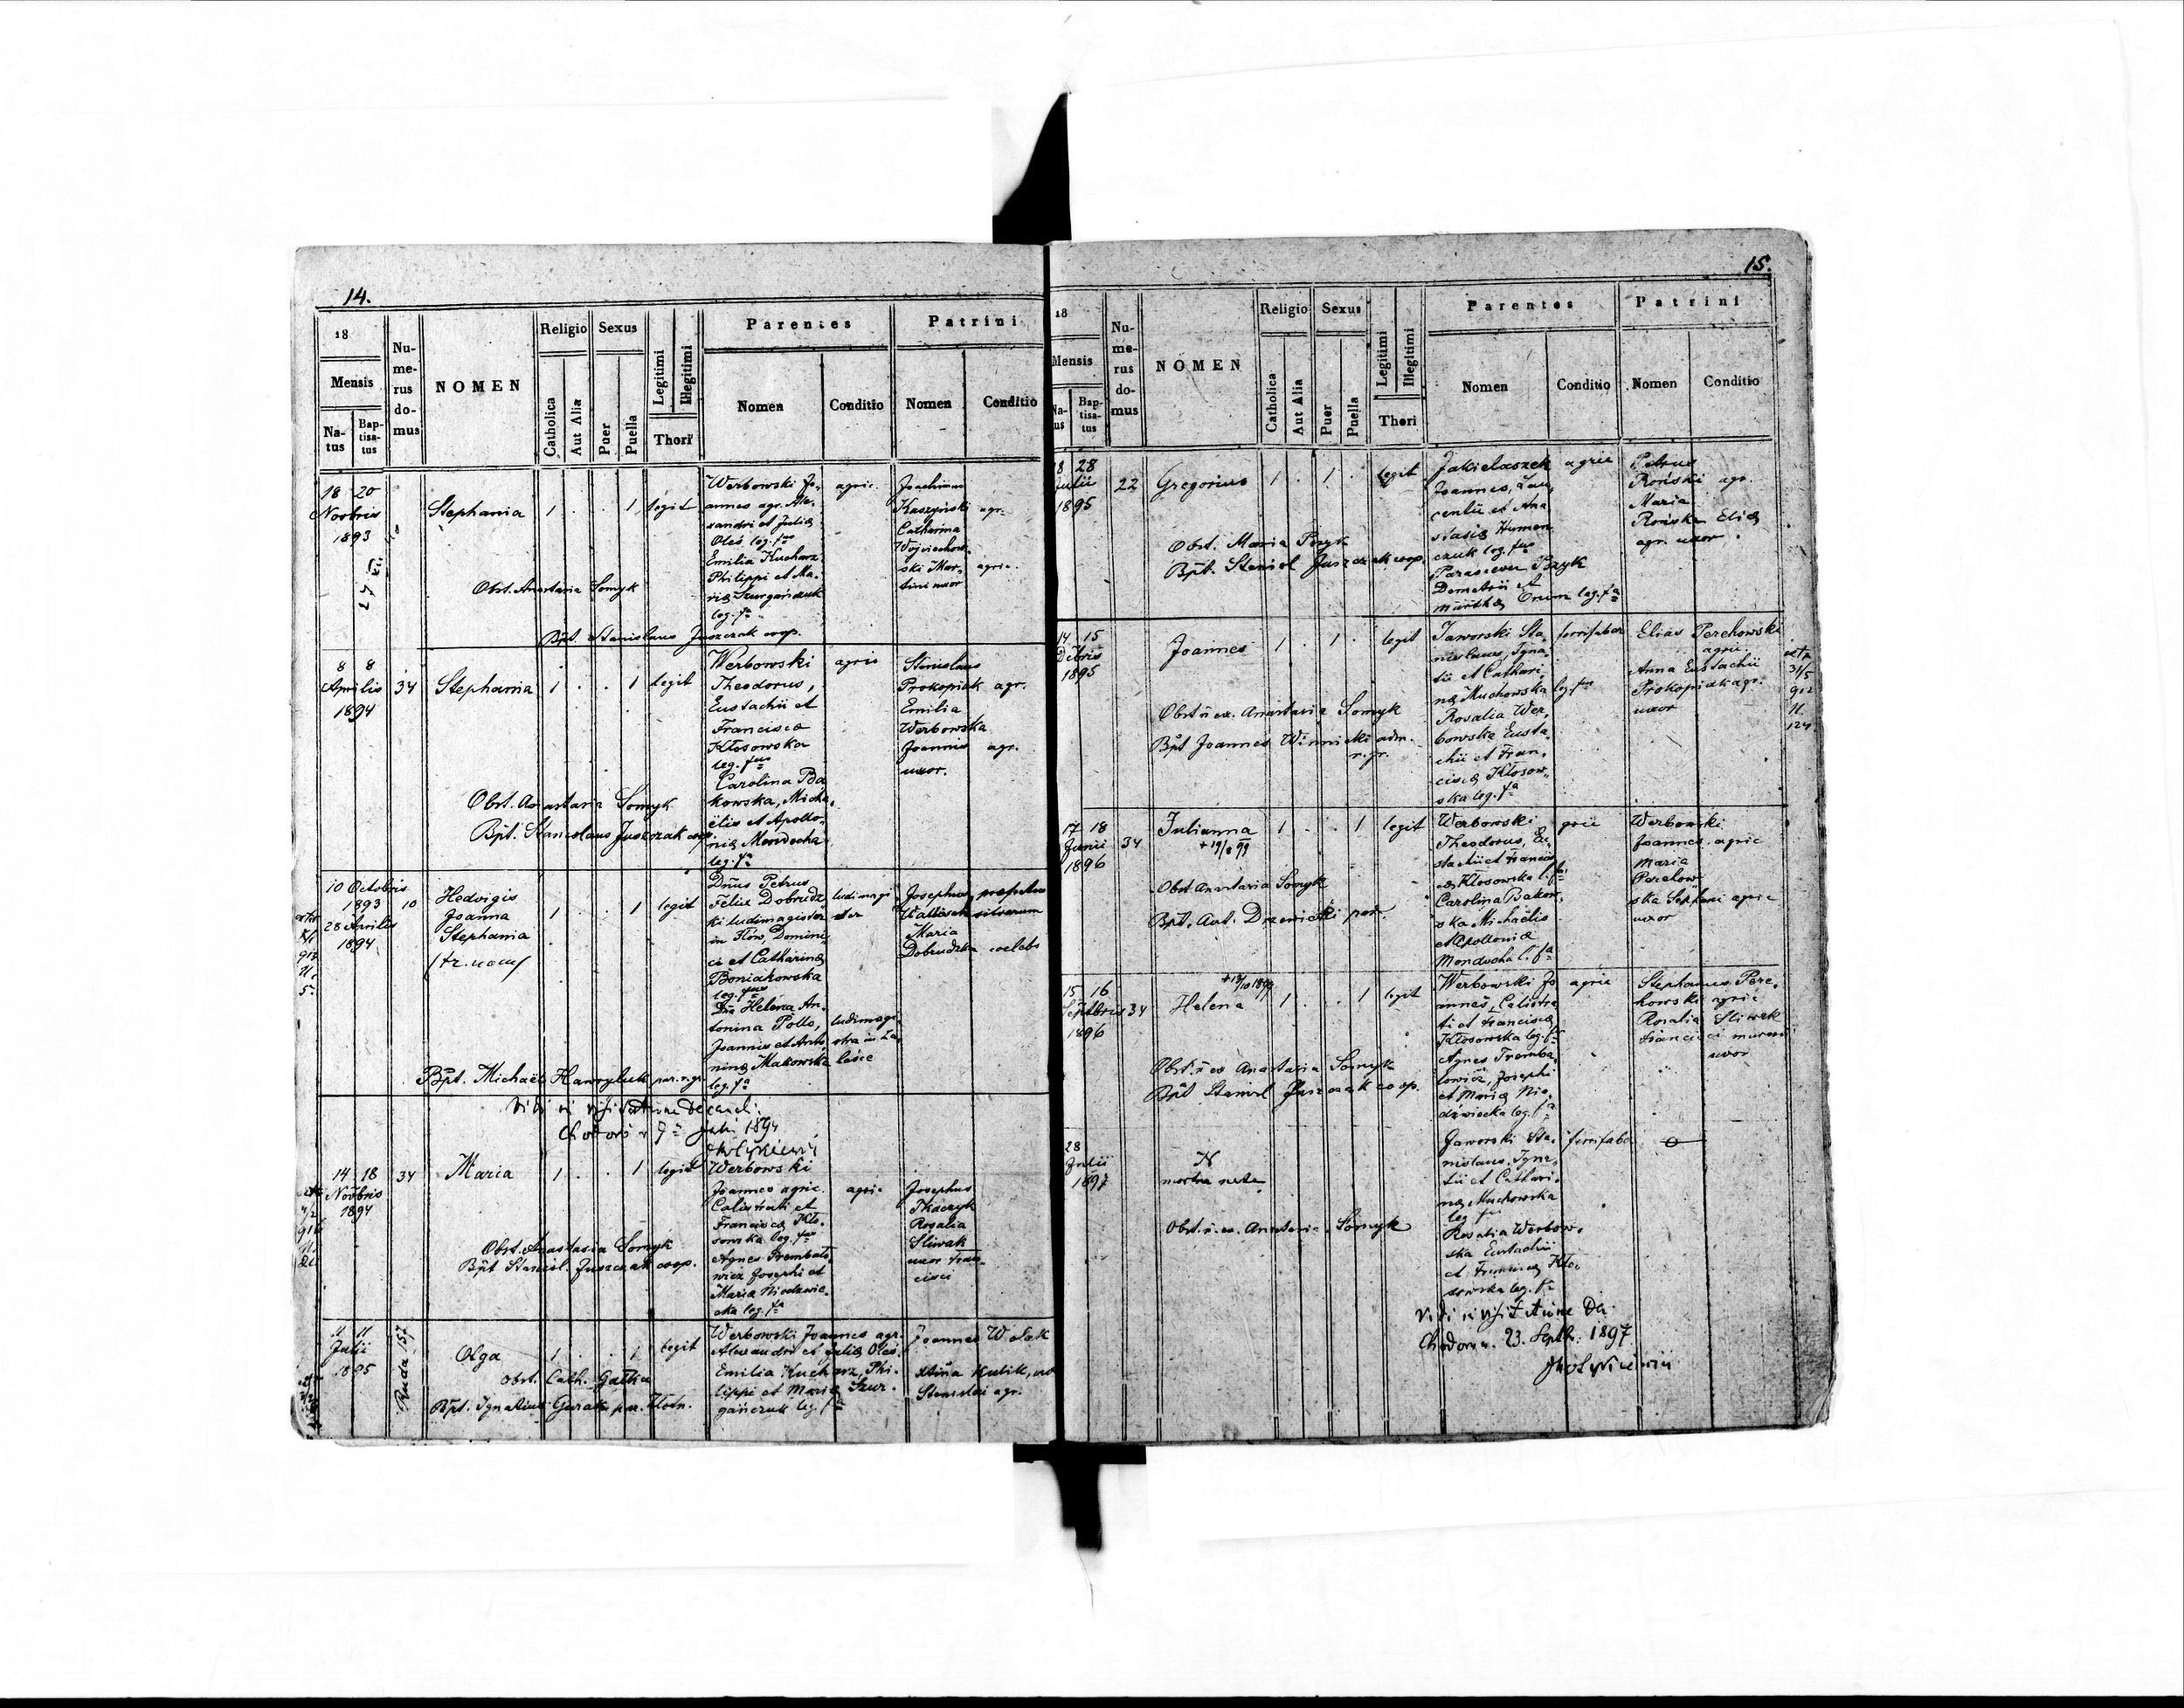 14.
18
Mensis
Na-
tus
Bap-
tisa-
tus
Nu-
me-
rus
do-
mus
NOMEN
Religio
Catholica
Aut Alia
Sexus
Puer
Puella
Legitimi
Illegitimi
Thori
Parentes
Nomen
Conditio
Patrini
Nomen
Conditio
18 20
Novbris
1893
Stephania
1 . . 1 legit
Werbowski Jo-
annes agr. Ale-
xandri et Julia
Oleś leg. fus
Emilia Kucharz
Philippi et Ma-
ria Szurgańczuk
leg. fa
agric.
Joachimus
Kaszyński agr.
Catharina
Wojciechow-
ski Mar- agric.
tini uxor
Obst. Anastasia Somyk
Bpt. Stanislaus Juszczak coop.
8 8
Aprilis
1894
34
Stephania
1 . . 1 legit
Werbowski
Theodorus,
Eustachii et
Francisca
Kłosowska
leg. fus
Carolina Ba
kowska, Micha-
ëlis et Apollo-
nia Mendocha
leg. fa
agric
Stanislaus
Prokopiak agr.
Emilia
Werbowska
Joannis agr.
uxor.
Obst. Anastasia Somyk
Bpt. Stanislaus Juszczak coop.
10 Octobris
1893
28 Aprilis
1894
10
Hedvigis
Joanna
Stephania
1 . . 1 legit
Dnus Petrus
Felix Dobrudz
ki ludimagister
in Iłów, Domini-
ci et Catharina
Boniakowska
leg. fus
Dna Helena An-
tonina Pollo,
Joannis et Anto-
nina Makowska
leg. fa
ludimagi
ster
Josephus praefectus
Wallisch silvarum
Maria
Dobrudzka coelebs
Bpt. Michaël Hawryluk par. r. gr.
Vidi in visitatione Decanali
Chodorów 7 Julii 1894
14 18
Novbris
1894
34
Maria
1 . . 1 legit
Werbowski
Joannes agric.
Calistrati et
Francisca Kło-
sowska leg. fus
Agnes Trembało
wicz Josephi et
Maria Niedzwie-
cka leg. fa
agric
Josephus
Tkaczyk
Rosalia
Sliwak
uxor Fran-
cisci
Obst. Anastasia Somyk
Bpt Stanisl. Juszczak coop.
11 11
Julii
1895
Ruda 157
Olga
1 . . 1 legit
Werbowski Joannes agr.
Alexandri et Julia Oleś
Emilia Kucharz, Phi-
lippi et Maria Szur-
gańczuk leg. fa
Joannes Walak
Kulik,
Stanislai agr.
Obst. Cath. Gałka
Bpt. Ignatius Gurak par.
15.
18
Mensis
Na-
tus
Bap-
tisa-
tus
Nu-
me-
rus
do-
mus
NOMEN
Religio
Catholica
Aut Alia
Sexus
Puer
Puella
Legitimi
Illegitimi
Thori
Parentes
Nomen
Conditio
Patrini
Nomen
Conditio
18 28
Julii
1895
22
Gregorius
1 . 1 . legit
Jakielaszek
Joannes, Lau-
rentii et Ana
stasia Humen
czuk leg. fus
Parascewa Pszyk
Demetrii et
Martha leg. fa
agric
Petrus
Roński agr.
Maria
Rońska Elia
agr. uxor.
Obst. Maria Pszyk
Bpt. Stanisl Juszczak coop.
14 15
Dcbris
1895
Joannes
1 . 1 . legit
Jaworski Sta-
nislaus, Igna-
tii et Cathari-
na Muchowska leg. fus
Rosalia Wer-
bowska Eusta-
chii et Fran-
cisca Kłosow-
ska leg. fa
ferrifaber
Elias Perehowski
agric.
Anna Eustachii
Prokopiak agr.
uxor
Obst. Anastasia Somyk
Bpt Joannes Winnicki adm.
r. gr.
17 18
Junii
1896
34
Julianna
1 . . 1 legit
Werbowski
Theodorus, Eu-
stachii et Francis
ca Kłosowska l. fus
Carolina Bakow-
ska Michaëlis
et Apollonia
Mendocha l. fa
Werbowski
Joannes agric
Maria
Perehow
ska Stephani agric
uxor
Obst. Anastasia Somyk
Bpt. Ant. Drzewicki par.
15 16
Septbris
1896
34
Helena
1 . . 1 legit
Werbowski Jo
annes, Calistra
ti et Francisca
Kłosowska leg. fus
Agnes Tremba-
łowicz, Josephi
et Maria Nie-
dźwiecka leg. fa
agric
Stephanus Pere-
howski agric
Rosalia Sliwak
Francisci
uxor
Obst. Anastasia Somyk
Bpt Stanisl Juszczak coop.
28
Julii
1897
N
mortua nata
Jaworski Sta-
nislaus, Igna-
tii et Cathari-
na Muchowska
leg fus
Rosalia Werbow-
ska Eustachii
et Francisca Kło-
sowska leg. fa
ferrifaber
Obst. Anastasia Somyk
Vidi in visitatione De
Chodorów. 23. Septb. 1897